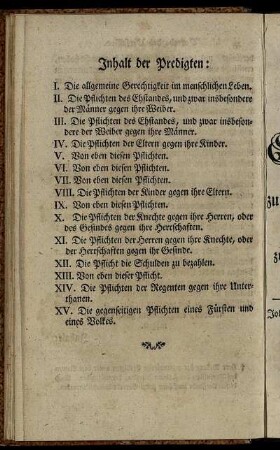 Inhalt der Predigten:
I. Die allgemeine Gerechtigkeit im menschlichen Leben.
II. Die Pflichten des Ehstandes, und zwar insbesondere
der Männer gegen ihre Weiber.
III. Die Pflichten des Ehstandes, und zwar insbeson-
dere der Weiber gegen ihre Männer.
IV. Die Pflichten der Eltern gegen ihre Kinder.
V. Von eben diesen Pflichten.
VI. Von eben diesen Pflichten.
VII. Von eben diesen Pflichten.
VIII. Die Pflichten der Kinder gegen ihre Eltern.
IX. Von eben diesen Pflichten.
X. Die Pflichten der Knechte gegen ihre Herren, oder
des Gesindes gegen ihre Herrschaften.
XI. Die Pflichten der Herren gegen ihre Knechte, oder
der Herrschaften gegen ihr Gesinde.
XII. Die Pflicht die Schulden zu bezahlen.
XIII. Von eben dieser Pflicht.
XIV. Die Pflichten der Regenten gegen ihre Unter-
thanen.
XV. Die gegenseitigen Pflichten eines Fürsten und
eines Volkes.
zu